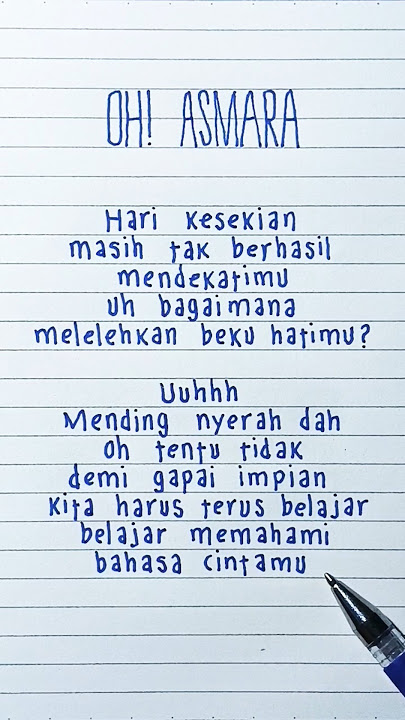 OH! ASMARA
Hari kesekian
masih tak berhasil
mendekatimu
uh bagaimana
melelehkan beku hatimu?
Uuhhh
Mending nyerah dah
Oh tentu tidak
demi gapai impian
Kita harus terus belajar
belajar memahami
bahasa cintamu